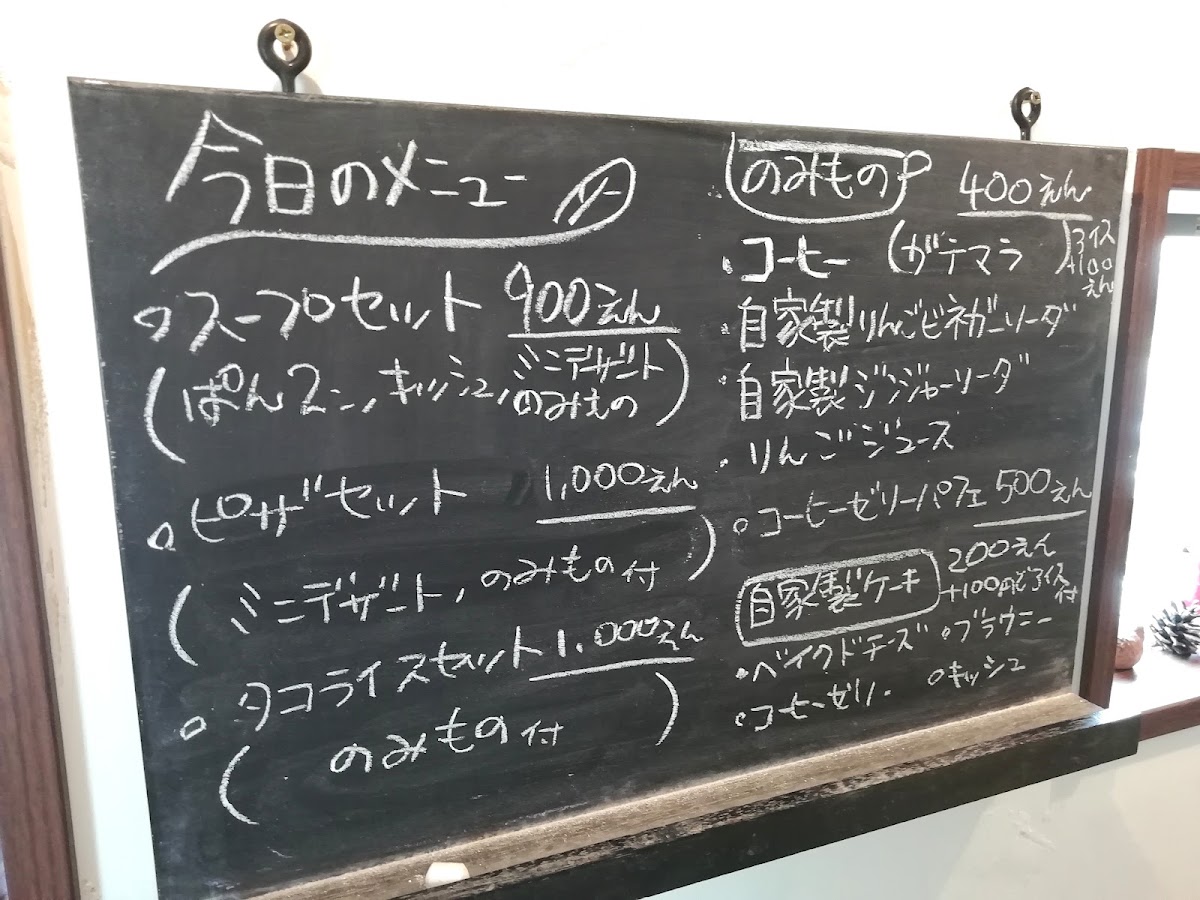 今日のメニュー
○スープセット 900えん
(ぱん2こ,キッシュ,ミニデザート
のみもの)
○ピザセット 1,000えん
(ミニデザート,のみもの付)
○タコライスセット 1,000えん
(のみもの付)
のみもの 400えん
・コーヒー (ガテマラ) アイス
+100
えん
・自家製りんごビネガーソーダ
・自家製ジンジャーソーダ
・りんごジュース
○コーヒーゼリーパフェ 500えん
自家製ケーキ 200えん
+100円でアイス付
・ベイクドチーズ ○ブラウニー
・コーヒーゼリー ○キッシュ